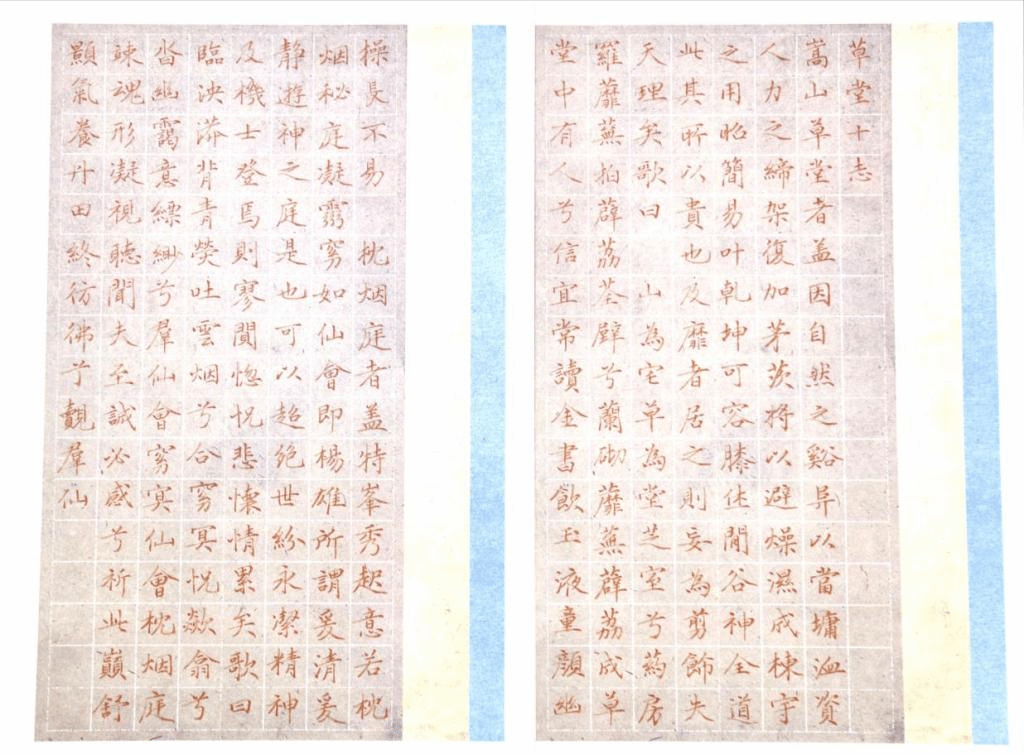 草堂十志
嵩山草堂者盖因自然之谿异以當墉洫资
人力之締架復加茅茨将以避燥濕成棟宇
之用昭簡易叶乾坤可容膝休閒谷神全道
此其所以貴也及靡者居之則妄為剪飾失
天理矣歌曰　山為宅草為堂芝室兮葯房
羅蘼蕪拍薜荔荃壁兮蘭砌蘼蕪薜荔成草
堂中有人兮信宜常讀金書飲玉液童顔幽
操長不易　枕烟庭者盖特峯秀起意若枕
烟秘庭凝霛窈如仙會即楊雄所謂爰清爰
静遊神之庭是也可以超绝世紛永潔精神
及機士登焉則寥閴惚怳悲懷情累矣歌曰
臨泱漭背青熒吐雲烟兮合窈冥怳歘翕兮
沓幽靄意縹緲兮羣仙會窈冥仙會枕烟庭
竦魂形凝視聽聞夫至誠必感兮祈此巔舒
顥氣養丹田終彷彿兮覿羣仙